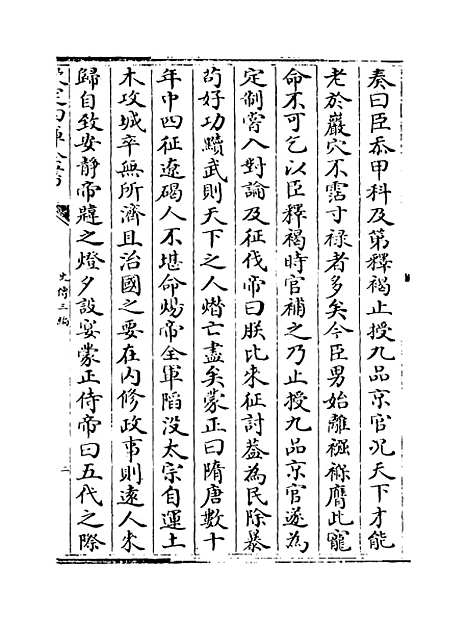 奏曰臣忝甲科及第釋褐止授九品京官况天下才能
老於巖穴不霑寸祿者多矣今臣男始離襁褓膺此寵
命不可乞以臣釋褐時官補之乃止授九品京官遂為
定制嘗入對論及征伐帝曰朕比來征討葢為民除暴
茍好功黷武則天下之人熸亡盡矣蒙正曰隋唐數十
年中四征遼碣人不堪命煬帝全軍陷没太宗自運土
木攻城卒無所濟且治國之要在内修政事則遠人來
歸自致安静帝韙之燈夕設宴蒙正侍帝曰五代之際
史傳三編
二